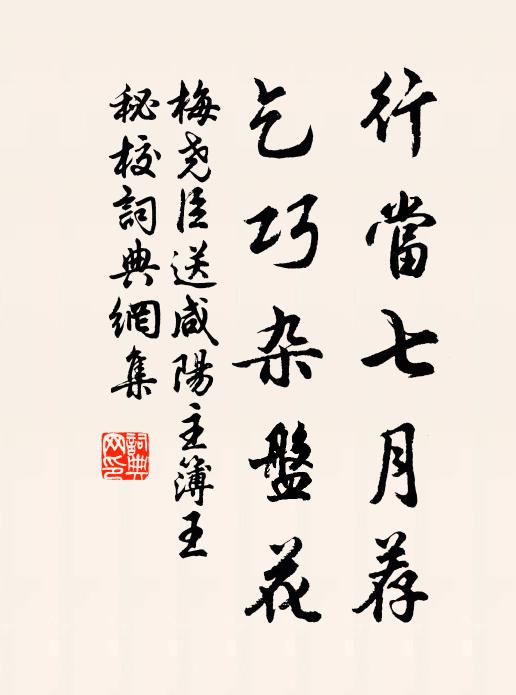 行當七月荐
乞巧杂盤花
梅尧臣送咸陽主簿王
秘校詞典網集
詞典网印